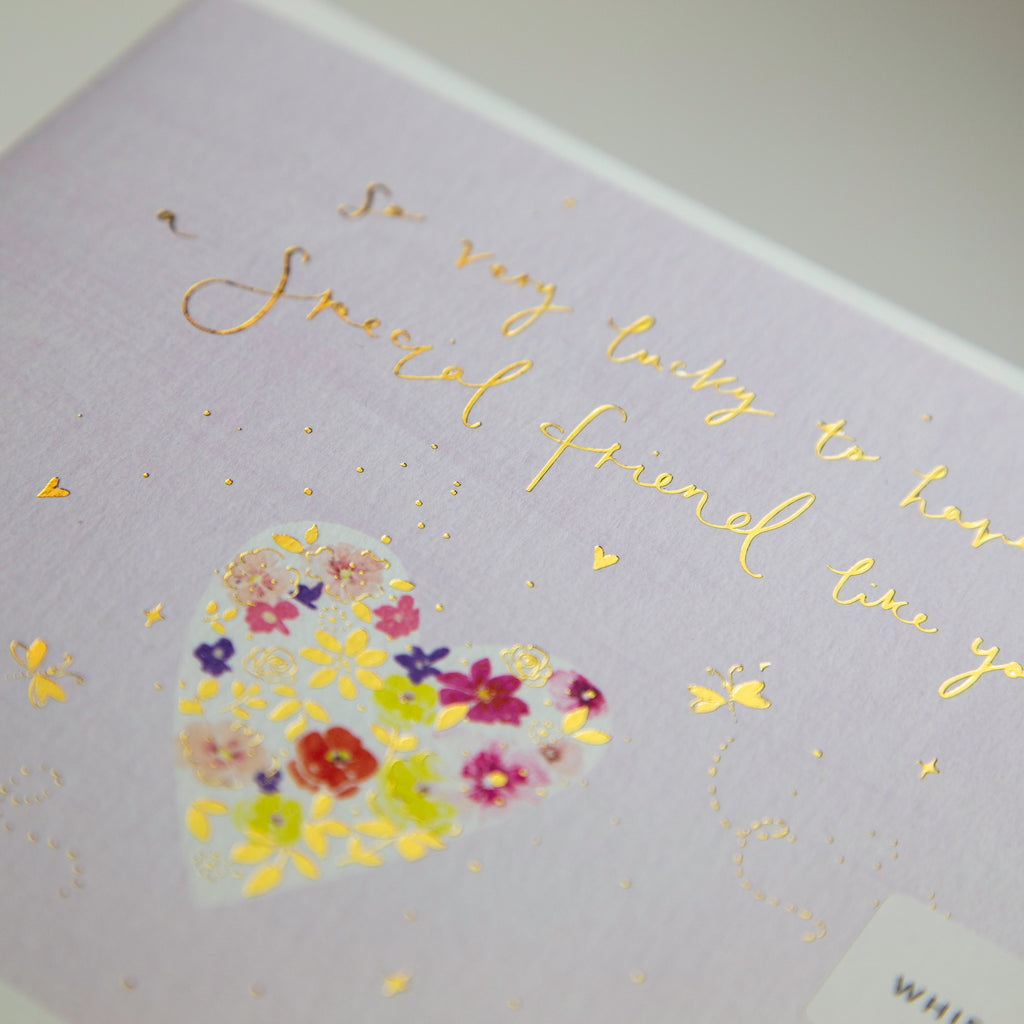 So very lucky to have
a Special friend like yo
WHI